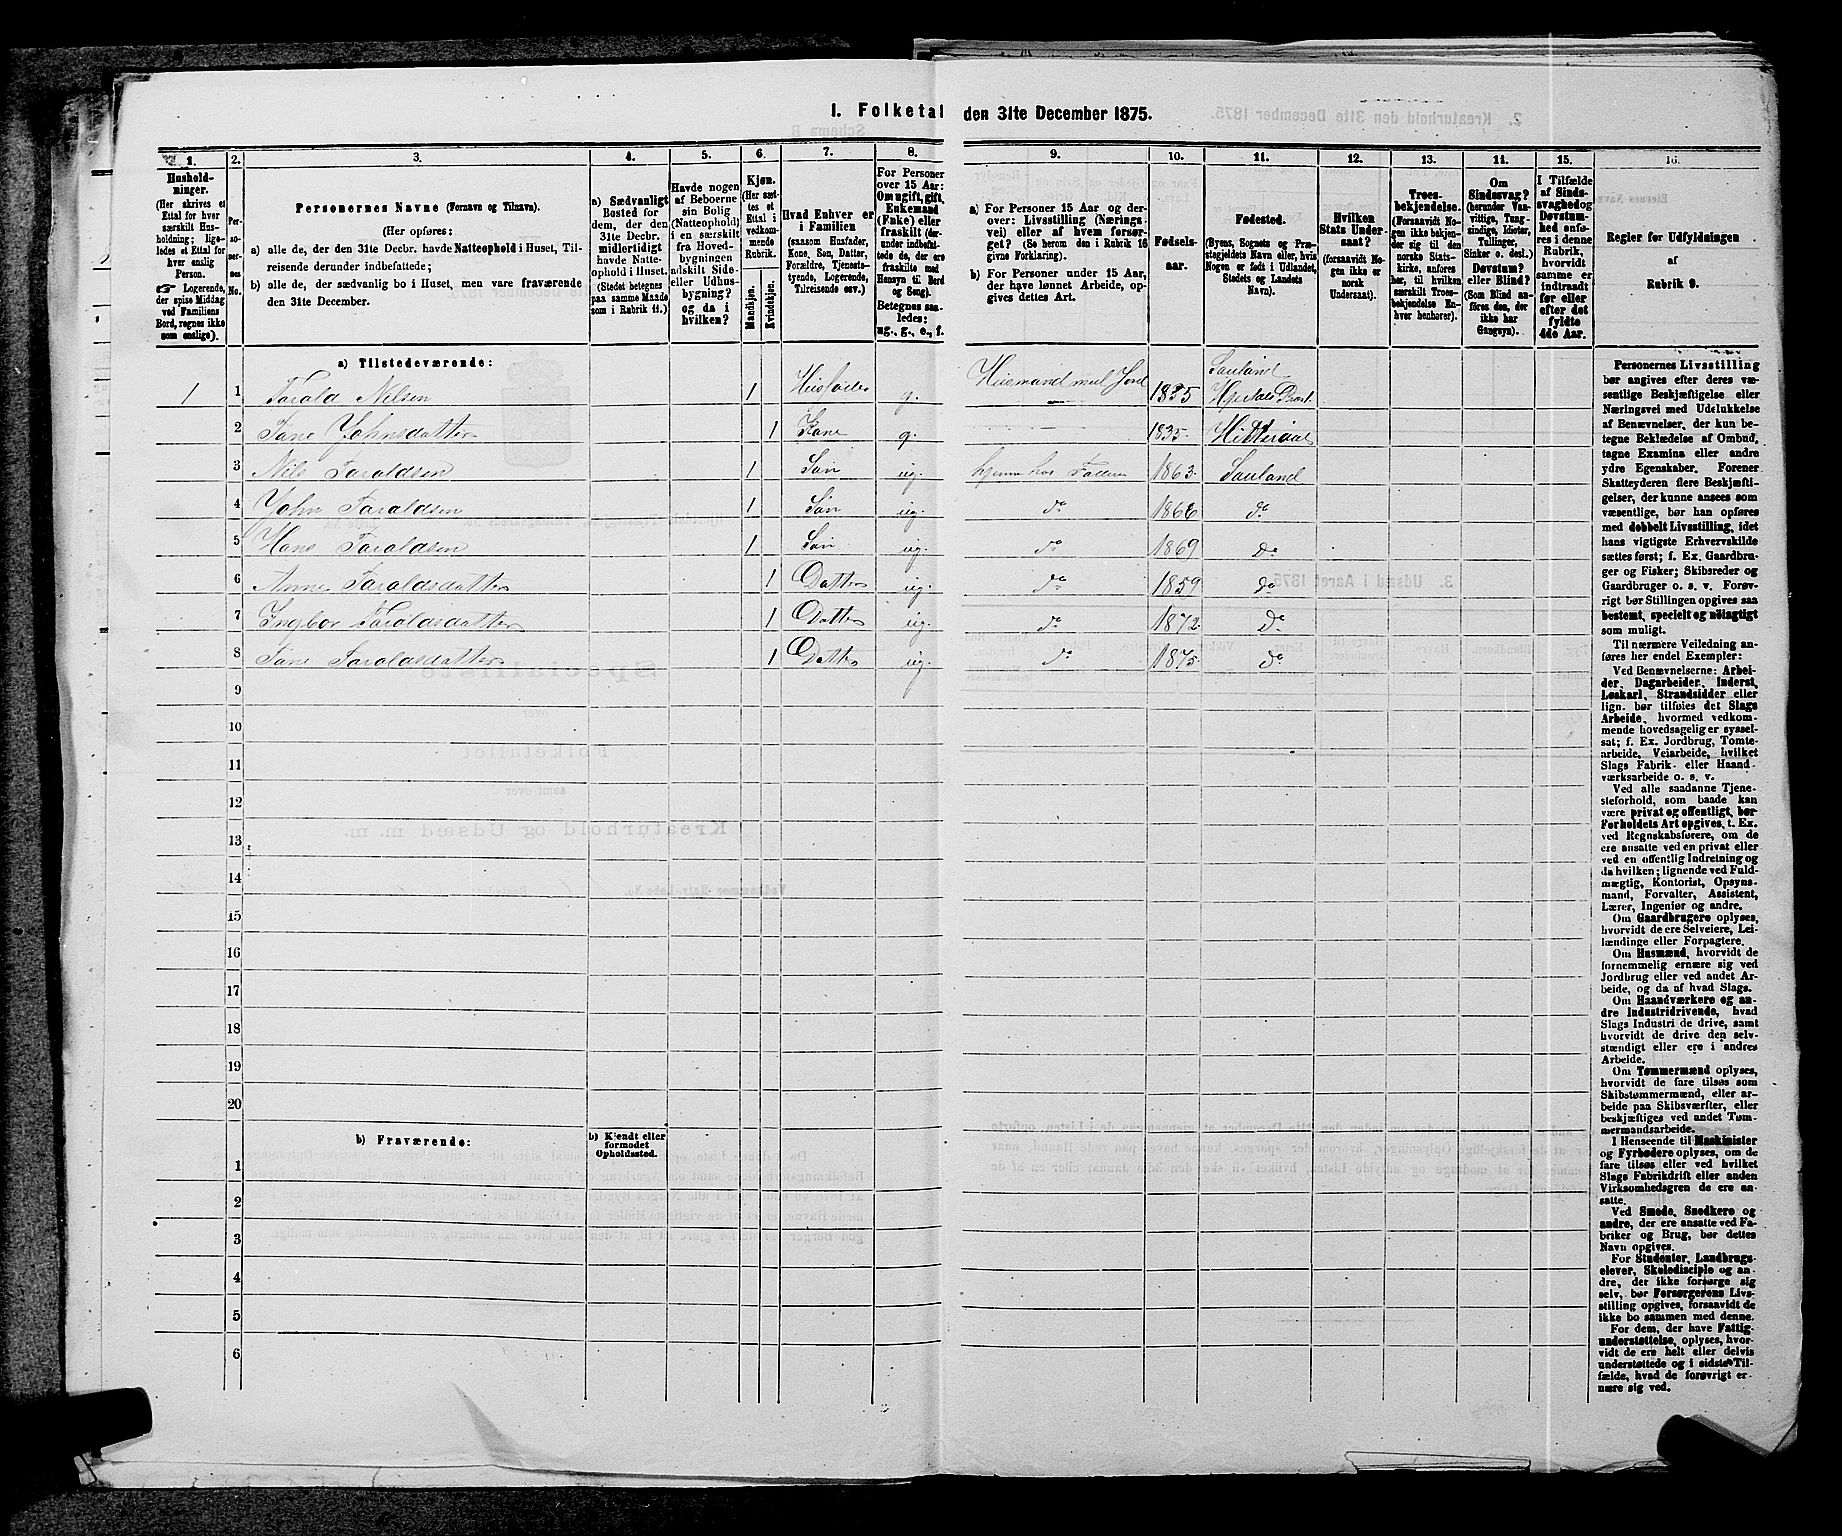 I. Folketal den 31te December 1875.
1. 2. 3. 4. 5. 6. 7. 8. 9. 10. 11. 12. 13. 14. 15. 16.
Hushold-
ninger.
(Her skrives et
Ettal for hver
særskilt Hus-
holdning; lige-
ledes et Ettal for
hver enslig
Person.
☞ Logerende,
der spise Middag
ved Familiens
Bord, regnes ikke
som enslige).
Per-
so-
ner-
nes
No.
Personernes Navne (Fornavn og Tilnavn).
(Her opføres:
a) alle de, der den 31te Decbr. havde Natteophold i Huset, Til-
reisende derunder indbefattede;
b) alle de, der sædvanlig bo i Huset, men vare fraværende
den 31te December.
a) Sædvanligt
Bosted for
dem, der den
31te Decbr.
midlertidigt
havde Natte-
ophold i Huset.
(Stedet betegnes
paa samme Maade
som i Rubrik 11.)
Havde nogen
af Beboerne
sin Bolig
(Natteophold)
i en særskilt
fra Hoved-
bygningen
adskilt Side-
eller Udhus-
bygning?
og da i
hvilken?
Kjøn.
(Her sæt-
tes et
Ettal i
vedkom-
mende
Rubrik.
Mandkjøn.
Kvindekjøn.
Hvad Enhver er
i Familien
(saasom Husfader,
Kone, Søn, Datter,
Forældre, Tjeneste-
tyende, Logerende,
Tilreisende osv.)
For Personer
over 15 Aar:
Om ugift, gift,
Enkemand
(Enke) eller
fraskilt (der-
under indbefat-
tede de, der ere
fraskilte med
Hensyn til Bord
og Seng).
Betegnes saa-
ledes:
ug., g., e., f.
a) For Personer 15 Aar og der-
over: Livsstilling (Nærings-
vei) eller af hvem forsør-
get? (Se herom den i Rubrik 16
givne Forklaring).
b) For Personer under 15 Aar,
der have lønnet Arbeide, op-
gives dettes Art.
Fødsels-
aar.
Fødested.
(Byens, Sognets og Præ-
stegjeldets Navn eller, hvis
Nogen er født i Udlandet,
Stedets og Landets
Navn).
Hvilken
Stats Under-
saat?
(forsaavidt No-
gen ikke er
norsk
Undersaat).
Troes-
bekjendelse.
(Forsaavidt No-
gen ikke bekjen-
der sig til den
norske Stats-
kirke, anføres
her, til hvilken
særskilt Troes-
bekjendelse En-
hver henhører).
Om
Sindssvag?
(herunder Van-
vittige, Tung-
sindige, Idioter,
Tullinger,
Sinker o. desl.)
Døvstum?
eller Blind?
(Som Blind an-
føres den, der
ikke har
Gangsyn).
I Tilfælde
af Sinds-
svaghed og
Døvstum-
hed anfø-
res i denne
Rubrik,
hvorvidt
samme er
indtraadt
før eller
efter det
fyldte
4de Aar.
Regler for Udfyldningen
af
Rubrik 9.
a) Tilstedeværende:
1 1 Tarald Nilsen 1 Husfader g. Husmand med Jord 1835 Sauland Hjertdals Præst.
2 Tane Johnsdatter 1 Kone g. 1835 Hitterdal
3 Nils Taraldsen 1 Søn ug. hjemme hos Faderen 1863 Sauland
4 John Taraldsen 1 Søn ug. do 1866 do
5 Hans Taraldsen 1 Søn ug. do 1869 Do
6 Anne Taraldsdatter 1 Datter ug. do 1859 do
7 Ingbor Taraldsdatter 1 Datter ug. do 1872 Do
8 Tane Taraldsdatter 1 Datter ug. do 1875 do
9
10
11
12
13
14
15
16
17
18
19
20
b) Fraværende:
b) Kjendt eller
formodet
Opholdssted.
1
2
3
4
5
6
Personernes Livsstilling
bør angives efter deres væ-
sentlige Beskjæftigelse eller
Næringsvei med Udelukkelse
af Benævnelser, der kun be-
tegne Beklædelse af Ombud,
tagne Examina eller andre
ydre Egenskaber. Forener
Skatteyderen flere Beskjæfti-
gelser, der kunne ansees som
væsentlige, bør han opføres
med dobbelt Livsstilling, idet
hans vigtigste Erhvervskilde
sættes først; f. Ex. Gaardbru-
ger og Fisker; Skibsreder og
Gaardbruger o. s. v. Forøv-
rigt bør Stillingen opgives saa
bestemt, specielt og nøiagtigt
som muligt.
Til nærmere Veiledning an-
føres her endel Exempler:
Ved Benævnelserne: Arbei-
der, Dagarbeider, Inderst,
Løskarl, Strandsidder eller
lign. bør tilføies det Slags
Arbeide, hvormed vedkom-
mende hovedsagelig er syssel-
sat; f. Ex. Jordbrug, Tomte-
arbeide, Veiarbeide, hvilket
Slags Fabrik- eller Haand-
værksarbeide o. s. v.
Ved alle saadanne Tjene-
steforhold, som baade kan
være privat og offentligt, bør
Forholdets Art opgives, t. Ex.
ved Regnskabsførere, om de
ere ansatte ved en privat eller
ved en offentlig Indretning og
da hvilken; lignende ved Fuld-
mægtig, Kontorist, Opsyns-
mand, Forvalter, Assistent,
Lærer, Ingeniør og andre.
Om Gaardbrugere oplyses,
hvorvidt de ere Selveiere, Lei-
lændinge eller Forpagtere.
Om Husmænd, hvorvidt de
fornemmelig ernære sig ved
Jordbrug eller ved andet Ar-
beide, og da af hvad Slags.
Om Haandværkere og an-
dre Industridrivende, hvad
Slags Industri de drive, samt
hvorvidt de drive den selv-
stændigt eller ere i andres
Arbeide.
Om Tømmermænd oplyses,
hvorvidt de fare tilsøs som
Skibstømmermænd, eller ar-
beide paa Skibsværfter, eller
beskjæftiges ved andet Tøm-
mermandsarbeide.
I Henseende til Maskinister
og Fyrbødere oplyses, om de
fare tilsøs eller ved hvilket
Slags Fabrikdrift eller anden
Virksomhedsgren de ere an-
satte.
Ved Smede, Snedkere og
andre, der ere ansatte ved Fa-
briker og Brug, bør dettes
Navn opgives.
For Studenter, Landbrugs-
elever, Skoledisciple og an-
dre, der ikke forsørge sig
selv, bør Forsørgerens Livs-
stilling opgives, forsaavidt de
ikke bo sammen med denne.
For dem, der have Fattig-
understøttelse, oplyses, hvor-
vidt de ere helt eller delvis
understøttede og i sidste Til-
fælde, hvad de forøvrigt er-
nære sig ved.